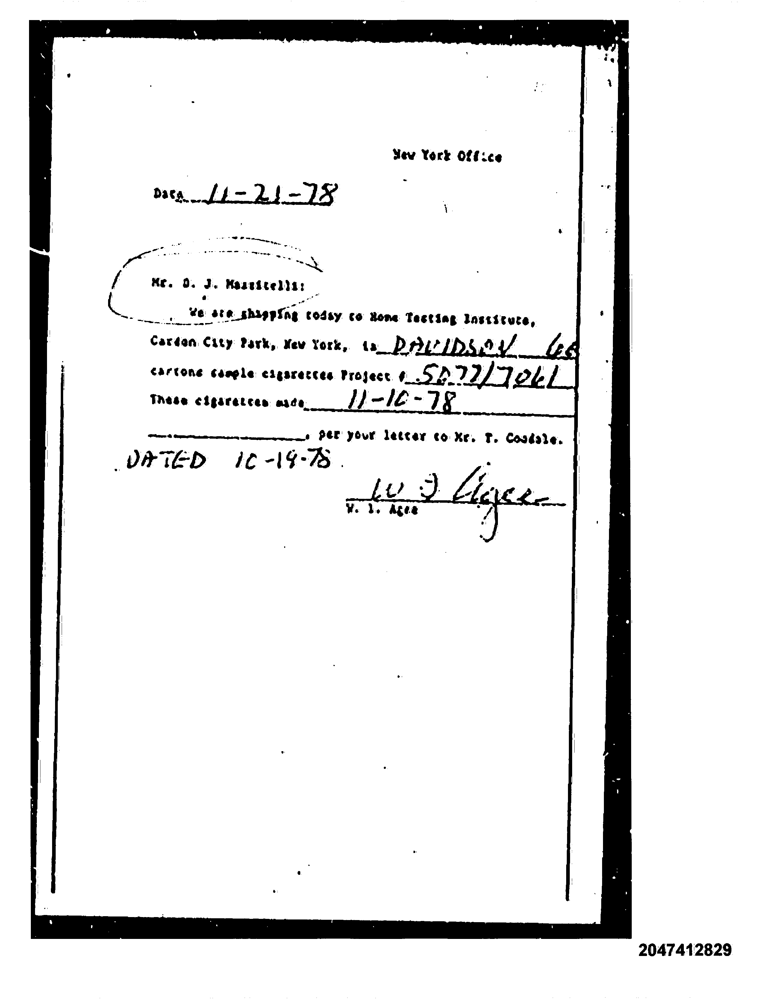 New York Office
Date 11-21-78
Mr. D. J. Massitelli:
We are shipping today to Home Testing Institute,
Garden City Park, New York, in DAVIDSON
cartons sample cigarettes Project # 5077/7061
These cigarettes made 11-10-78
, per your letter to Mr. T. Goodale.
DATED 10-19-78
W J Agee
W. J. Agee
2047412829